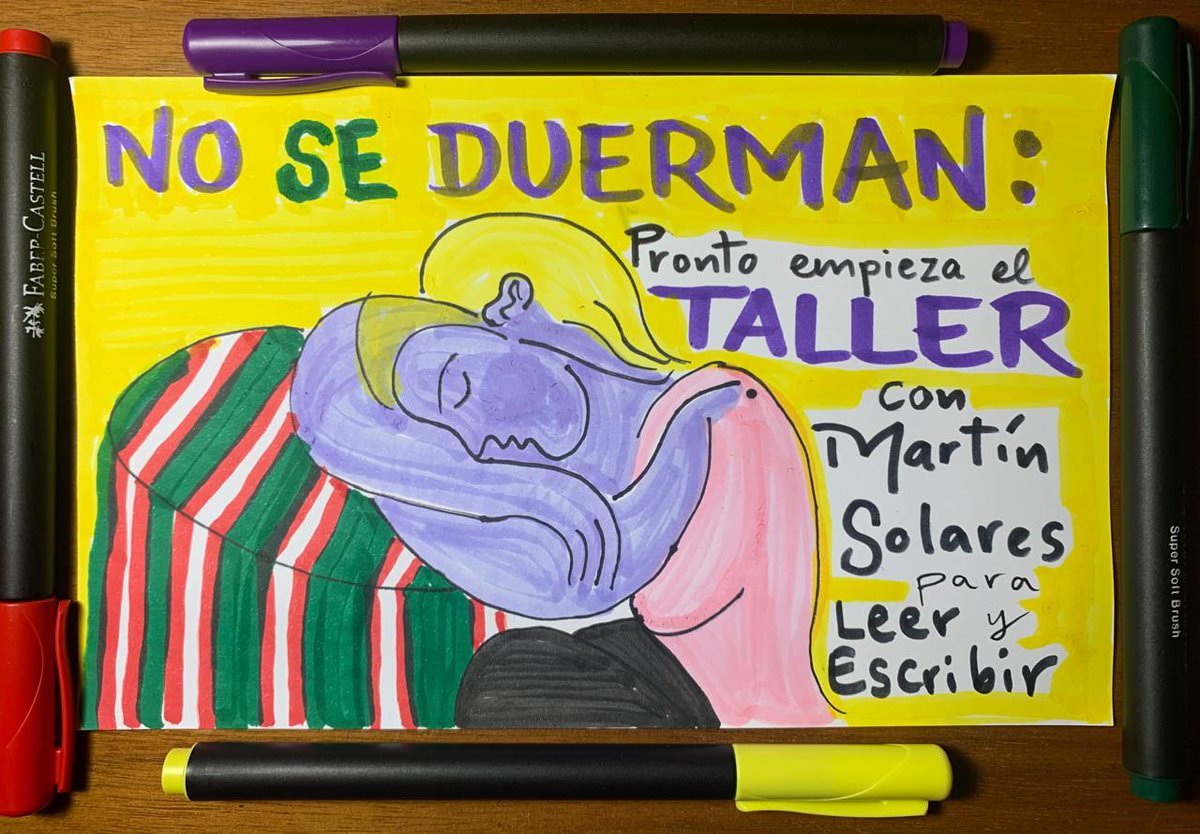 NO SE DUERMAN:
Pronto empieza el
TALLER
con
Martín
Solares
para
Leer y
Escribir
FABER-CASTELL
Super Soft Brush
Super Soft Brush